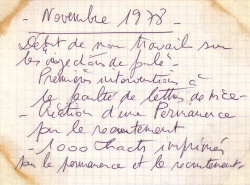 - Novembre 1978 -
Début de mon travail sur
les injections de
- Premières interventions à
la faculté de lettres de Nice -
- Création d'une Permanence
par le recrutement
- 1000 tracts imprimés
par la permanence et le recrutement